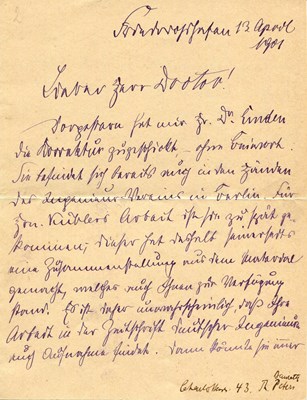 Friedrichshafen 13 April
1901
Lieber Herr Doctor!
Vorgestern hat mir Hr. Dr. Linden
die Korrektur zugeschickt – ohne Beiwort.
Sie befindet sich bereits auch in den Händen
des Ingenieur Vereins in Berlin. Für
Hrn. Küblers Arbeit ist sie zu spät ge
kommen; dieser hat deshalb seinerseits
eine Zusammenstellung aus dem Material
gemacht, welches auch Ihnen zur Verfügung
stand. Es ist daher unwahrscheinlich, daß Ihre
Arbeit in der Zeitschrift deutscher Ingenieure
auch Aufnahme findet. Dann könnte sie immer
43. Peters